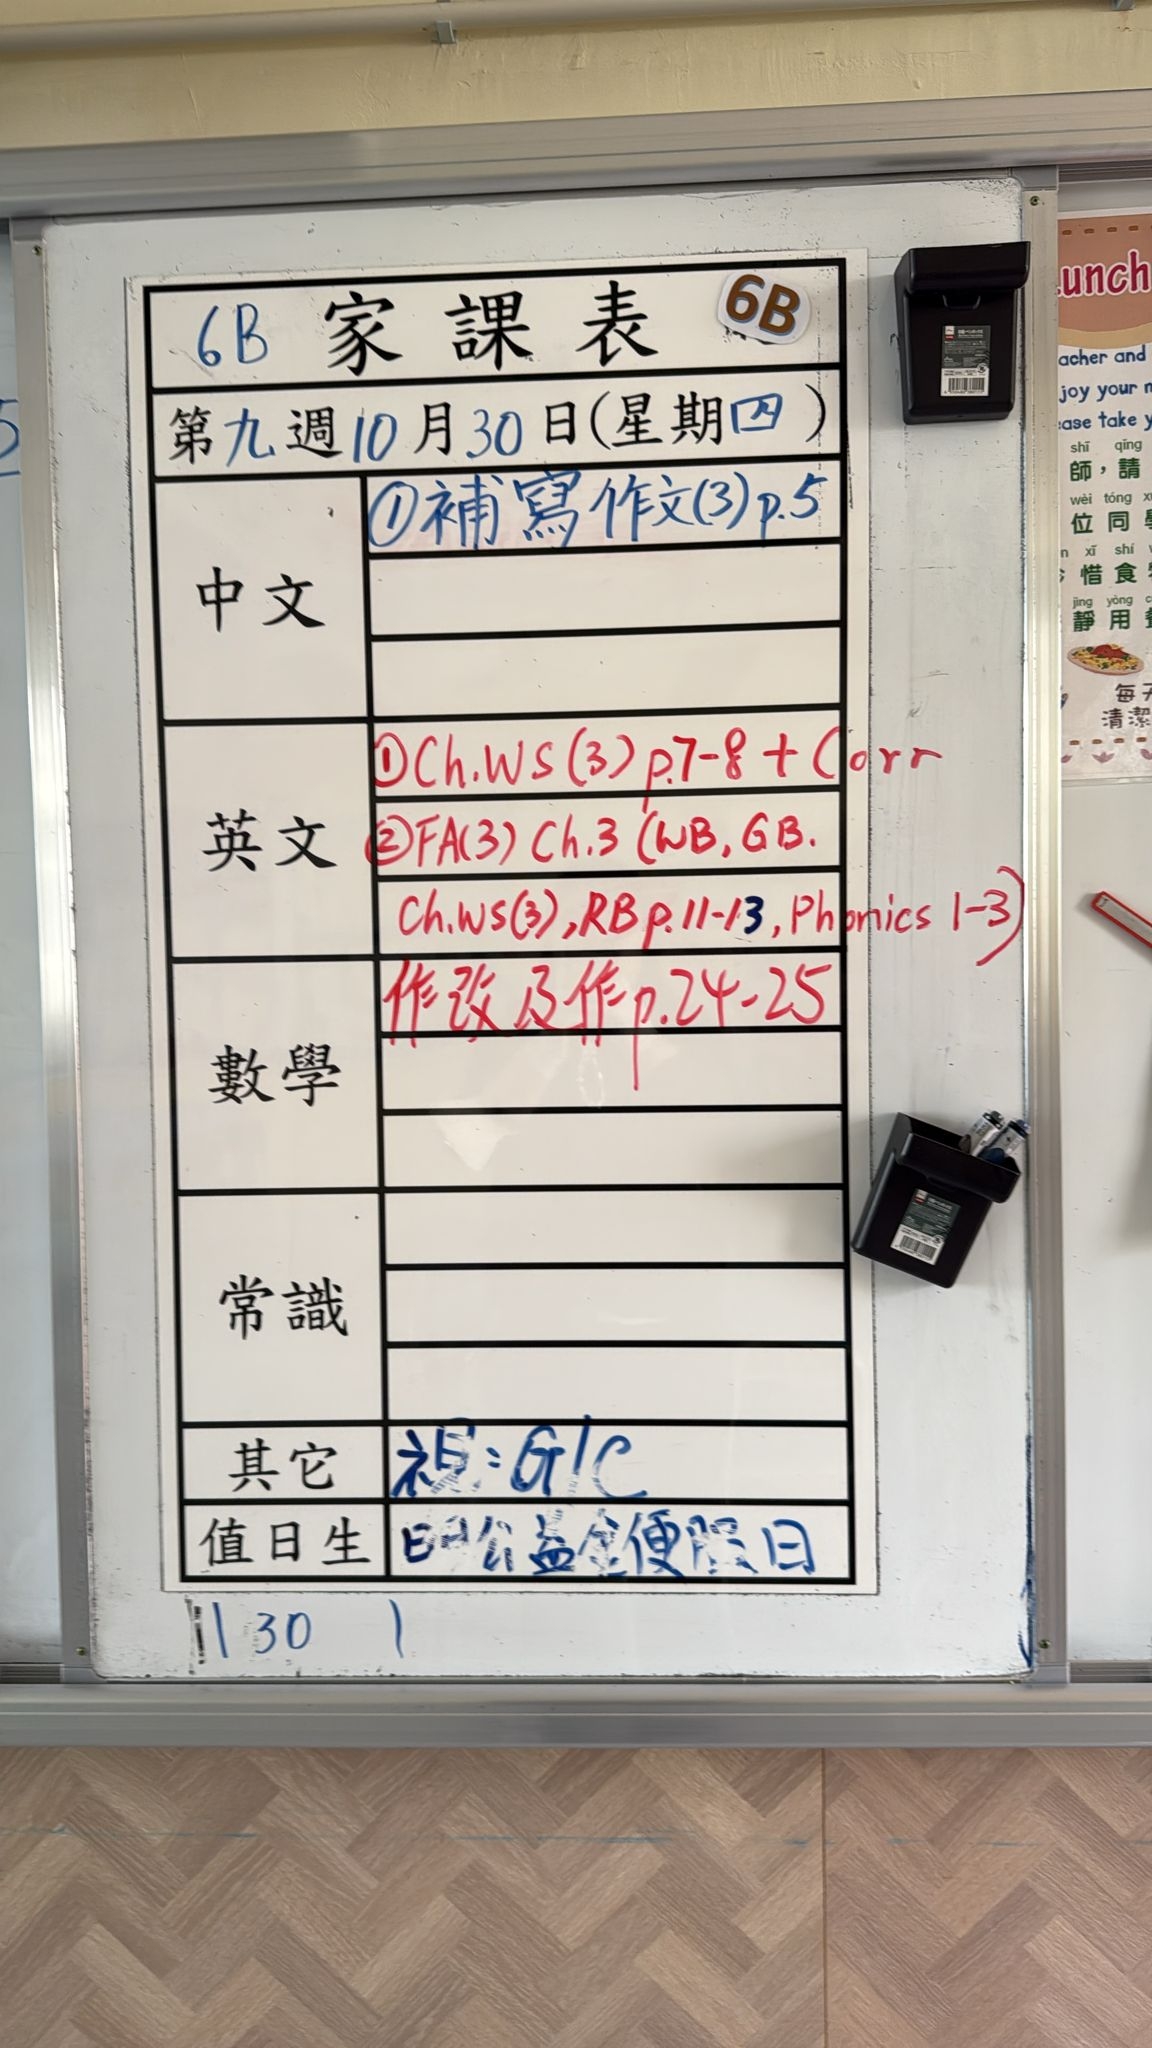 6B 家課表 6B
第九週10月30日(星期四)
中文
①補寫作文(3)p.5
英文
①Ch.WS(3)p.7-8+Corr
②FA(3) Ch.3 (WB, GB.
Ch.WS(3), RB p.11-13, Phonics 1-3)
數學
作改及作p.24-25
常識
其它
視:G/C
值日生
公益金便服日
130
unch
acher and
joy your
ease take
shī qīng
師,請
wèi tóng
位同
xī shí
惜食
jìng yòng
靜用
每天
清潔
5